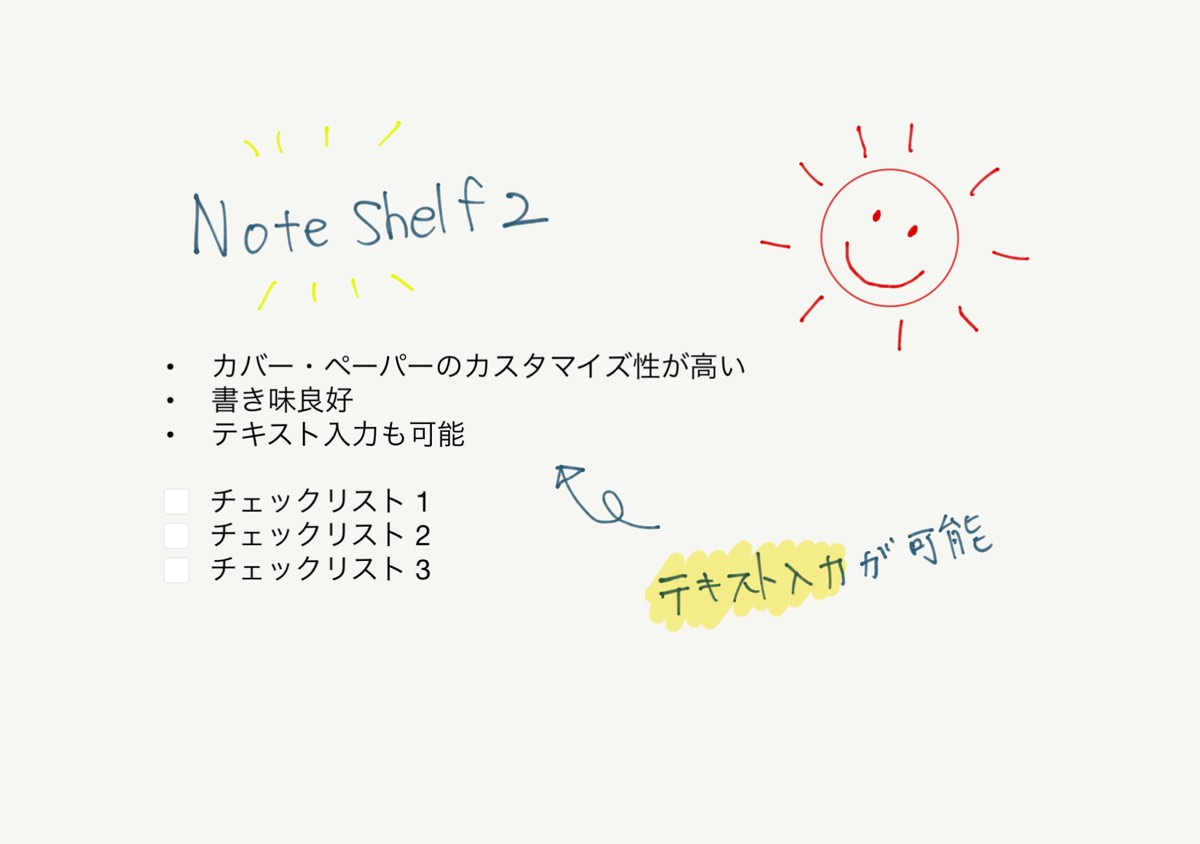 Note Shelf 2
• カバー・ペーパーのカスタマイズ性が高い
• 書き味良好
• テキスト入力も可能
チェックリスト 1
チェックリスト 2
チェックリスト 3
テキスト入力が可能